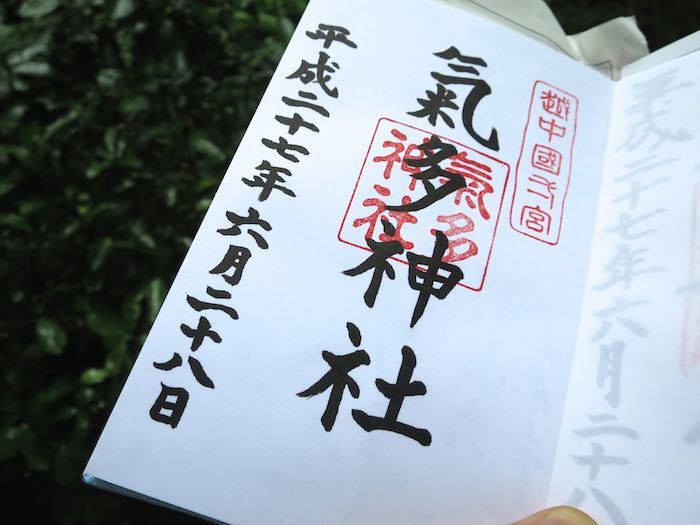 越中國弌宮
氣多神社
氣多
神社
平成二十七年六月二十八日
平成二十七年六月二十八